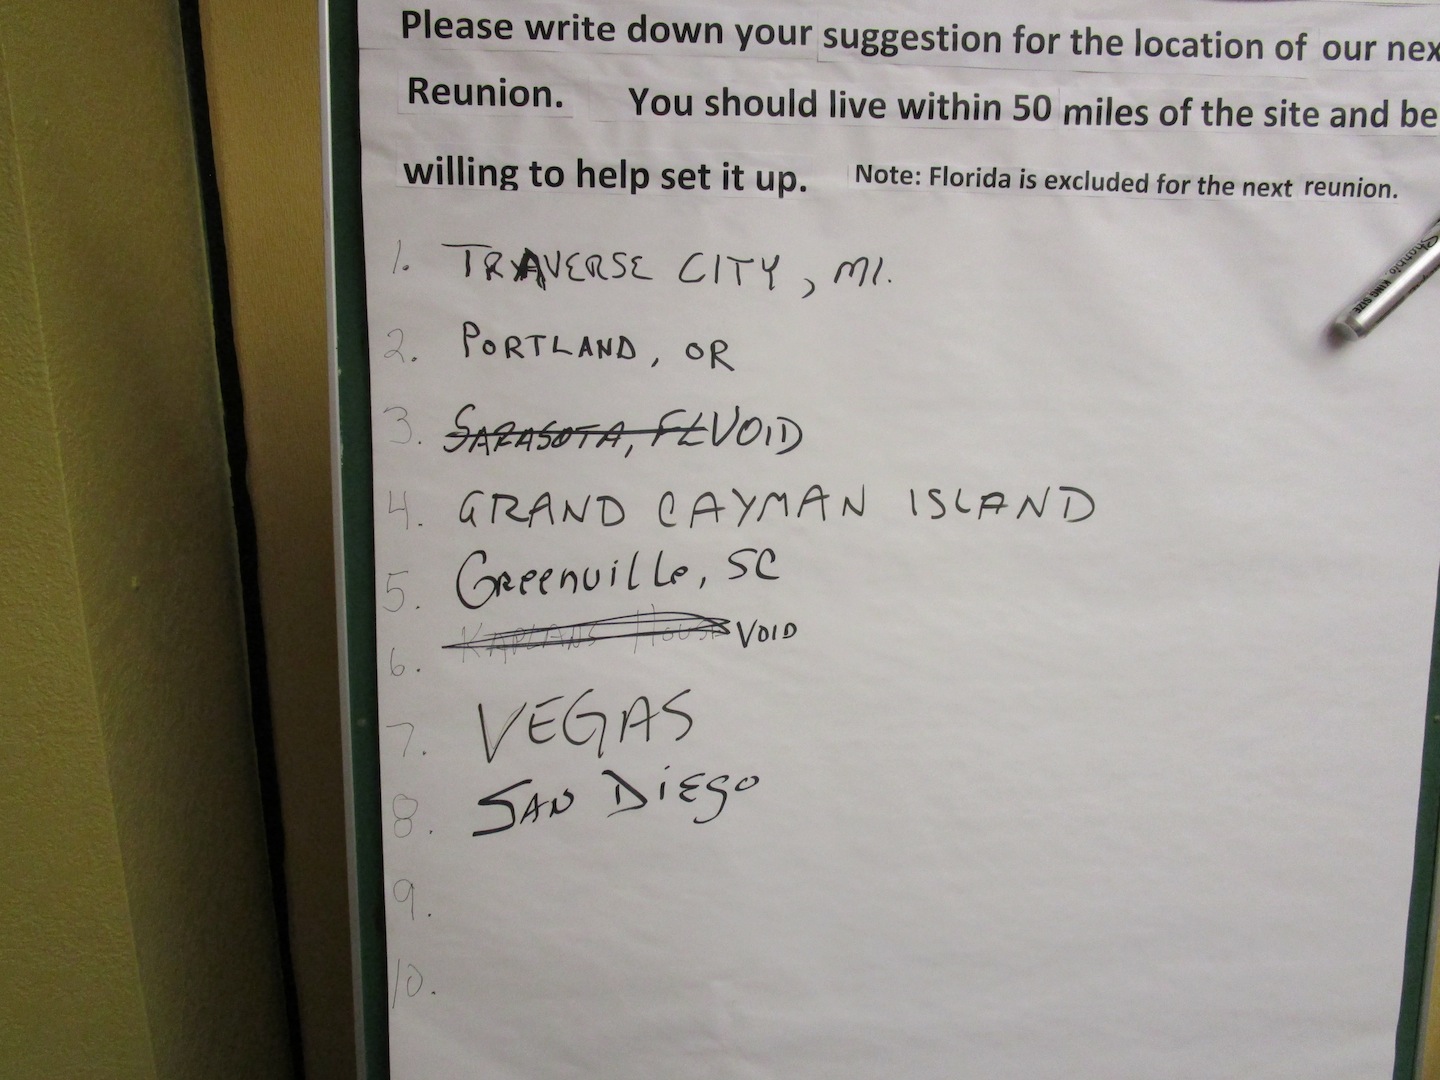 Please write down your suggestion for the location of our nex
Reunion. You should live within 50 miles of the site and be
willing to help set it up. Note: Florida is excluded for the next reunion.
1. TRAVERSE CITY, MI.
2. PORTLAND, OR
3. SARASOTA, FL VOID
4. GRAND CAYMAN ISLAND
5. Greenville, SC
6. KAPLANS HOUSE VOID
7. VEGAS
8. SAN DiEgo
9.
10.
KING SIZE